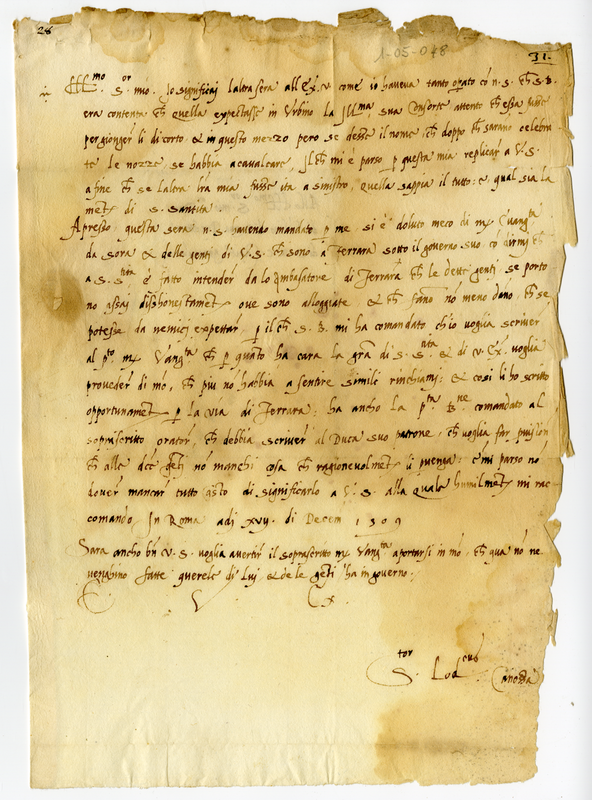 28
1-05-048
31.
Ill.mo S.or mio. Io significaj laltra sera all Ex. v. come io haveva tanto oprato cō n. s. che S. B.
era contenta che quella expectasse in Urbino la Ill.ma sua Consorte attento che essa fusse
per giongere li di corto & in questo mezzo pero se desse il nome che doppo che sarano celebra
te le nozze se habbia a cavalcare, Il che mi è parso p questa mia replicar a V. S.
a fine che se laltra l̄ra mia fusse ita a sinistro, quella sappia il tutto: e qual sia la
mete di S. Santita.
Apresso questa sera n. s. havendo mandato p me si è doluto meco di m. Vang.ta
da sora & delle genti di V. S. che sono a Ferrara sotto il governo suo cō dirmj che
a S. S.ta è fatto intender da lo Ambasatore di Ferrara che le dette genti se porto
no assaj dishonestamete ove sono alloggiate & che fano nō meno dāno che se
potesse da nemici expettar. p il che S. B. mi ha comandato ch'io voglia scriver
al p.to m. Vang.ta che p quāto ha cara la gr̄a di S. S.ta & di v. Ex. voglia
proveder di mō, che piu nō habbia a sentire simili rinchiami: & cosi li ho scritto
opportunamete p la via di Ferrara: ha ancho la p.ta B.ne comandato al
soprascritto orator, che debbia scriver al Duca suo patrone, che voglia far pvision
che alle dcē gēti nō manchi cosa che ragionevolmete li pvenga: e mi parso nō
dover mancar tutto q̄sto di significarlo a V. S. alla quale humilmete mi rac
comando. In Roma adi xvij. di Decem 1509
Sara ancho bn̄ V. S. voglia avertir il soprascritto m. Vang.ta aportarsi in mō, che qua nō ne
venghino fatte querele di luj & de le gēti ha in governo.
E. V. Ex.
S.tor Lod.cus Canossa